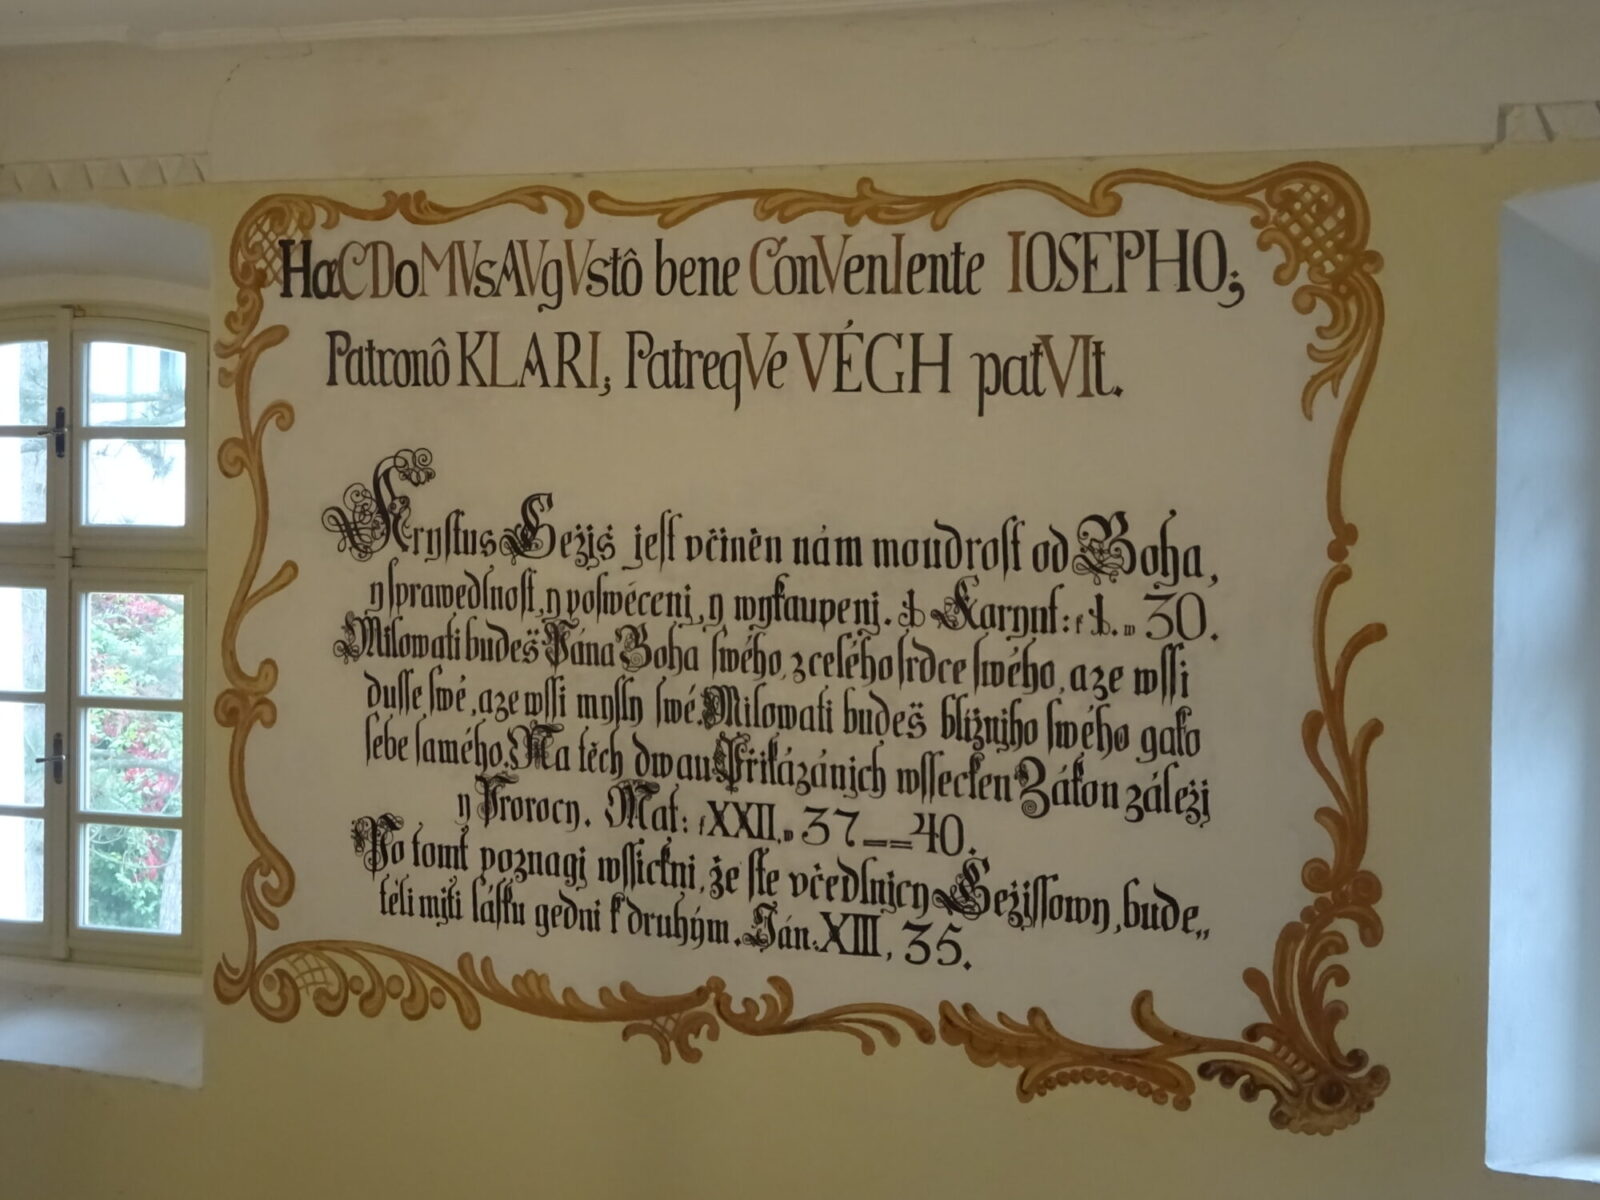 HæCDoMVsAVgVstô bene ConVenIente IOSEPHO;
Patronô KLARI; PatreqVe VÉGH patVIt.
Krystus Gežjš jest včiněn nám moudrost od Boha,
y sprawedlnost, y poswěcenj, y wykaupenj. Karynt: 30.
Milowati budeš Pána Boha swého, z celého srdce swého, a ze wssi
dusse swé, a ze wssi mysly swé. Milowati budeš bližnjho swého gako
sebe samého. Na těch dwau Přikázánjch wssecken Zákon záležj
y Prorocy. Mat: XXII, 37==40.
Po tomť poznagj wssickni, že ste včedlnjcy Gežjssowy, bude„
teli mjti lásku gedni k druhým. Ján: XIII, 35.